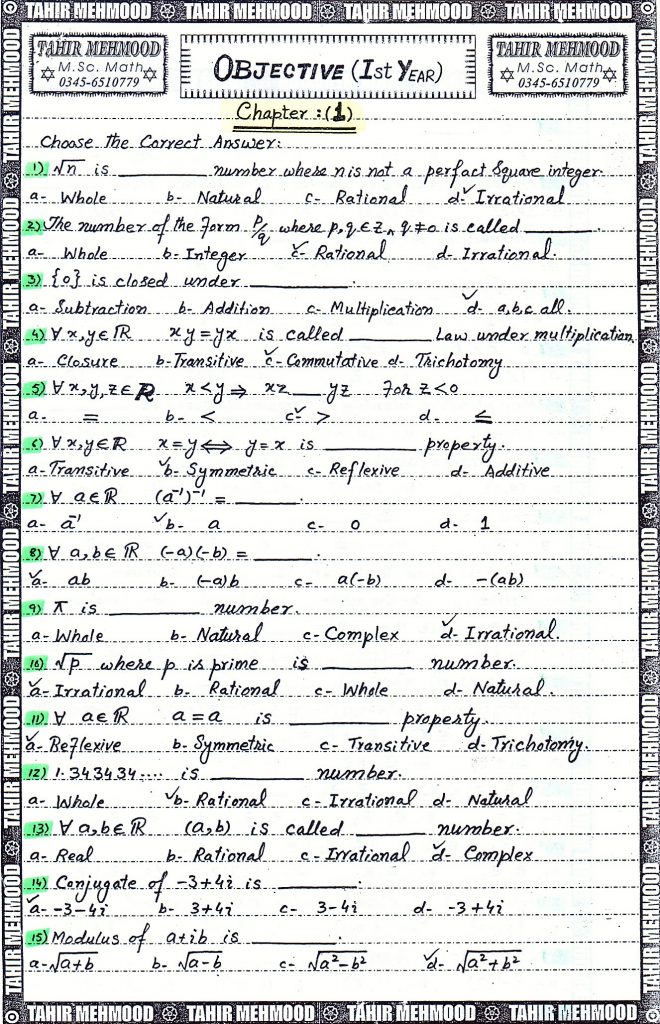 TAHIR MEHMOOD TAHIR MEHMOOD TAHIR MEHMOOD TAHIR MEHMOOD
TAHIR MEHMOOD
M.Sc. Math
0345-6510779
OBJECTIVE (Ist YEAR)
TAHIR MEHMOOD
M.Sc. Math
0345-6510779
Chapter :(1)
Choose the Correct Answer:
1) √n is ________ number where n is not a perfact Square integer.
a- Whole b- Natural c- Rational d-✓ Irrational
2) The number of the form p/q where p,q ∈ Z ∧ q ≠ 0 is called ________.
a- Whole b- Integer ✓c- Rational d- Irrational.
3) {0} is closed under ________.
a- Subtraction b- Addition c- Multiplication ✓d- a,b,c all.
4) ∀ x,y ∈ ℝ xy = yx is called ________ Law under multiplication.
a- Closure b- Transitive ✓c- Commutative d- Trichotomy
5) ∀ x,y,z ∈ ℝ x < y ⇒ xz ___ yz For z < 0
a. = b- < c-✓ > d. ≤
6) ∀ x,y ∈ ℝ x = y ⟺ y = x is ________ property.
a- Transitive ✓b- Symmetric c- Reflexive d- Additive
7) ∀ a ∈ ℝ (a⁻¹)⁻¹ = ________.
a- a⁻¹ ✓b- a c- 0 d- 1
8) ∀ a,b ∈ ℝ (-a)(-b) = ________.
✓a- ab b- (-a)b c- a(-b) d- -(ab)
9) π is ________ number.
a- Whole b- Natural c- Complex ✓d- Irrational.
10) √p where p is prime is ________ number.
✓a- Irrational b- Rational c- Whole d- Natural.
11) ∀ a ∈ ℝ a = a is ________ property.
✓a- Reflexive b- Symmetric c- Transitive d- Trichotomy.
12) 1.343434.... is ________ number.
a- Whole ✓b- Rational c- Irrational d- Natural
13) ∀ a,b ∈ ℝ (a,b) is called ________ number.
a- Real b- Rational c- Irrational ✓d- Complex
14) Conjugate of -3+4i is ________.
✓a- -3-4i b- 3+4i c- 3-4i d- -3+4i
15) Modulus of a+ib is ________.
a- √a+b b- √a-b c- √a²-b² ✓d- √a²+b²
TAHIR MEHMOOD TAHIR MEHMOOD TAHIR MEHMOOD TAHIR MEHMOOD